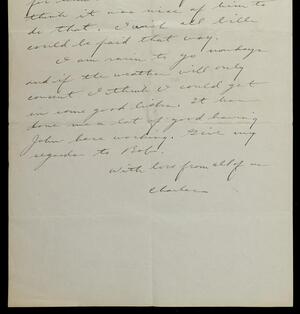 think it was nice of him to
do that. I wish all bills
could be paid that way.
I am to go nowdays
and if the weather will only
consent I think I could get
in some good licks. It has
done me a lot of good having
John here working. Give my
regards to Bob.
With love from all of us
Charles